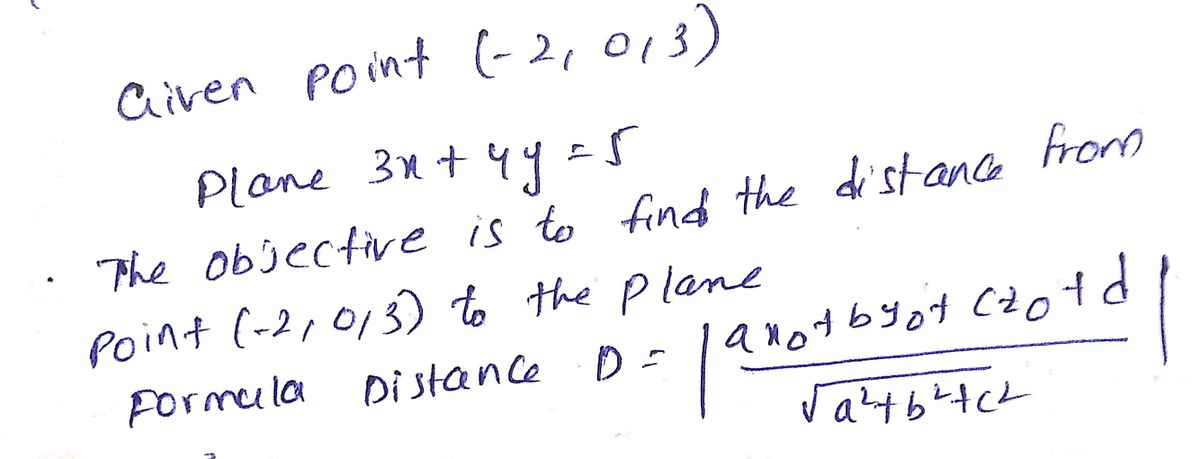 Given point (-2, 0, 3)
Plane 3x + 4y = 5
The objective is to find the distance from
point (-2, 0, 3) to the plane
Formula Distance D = | ax₀ + by₀ + cz₀ + d / √a²+b²+c² |